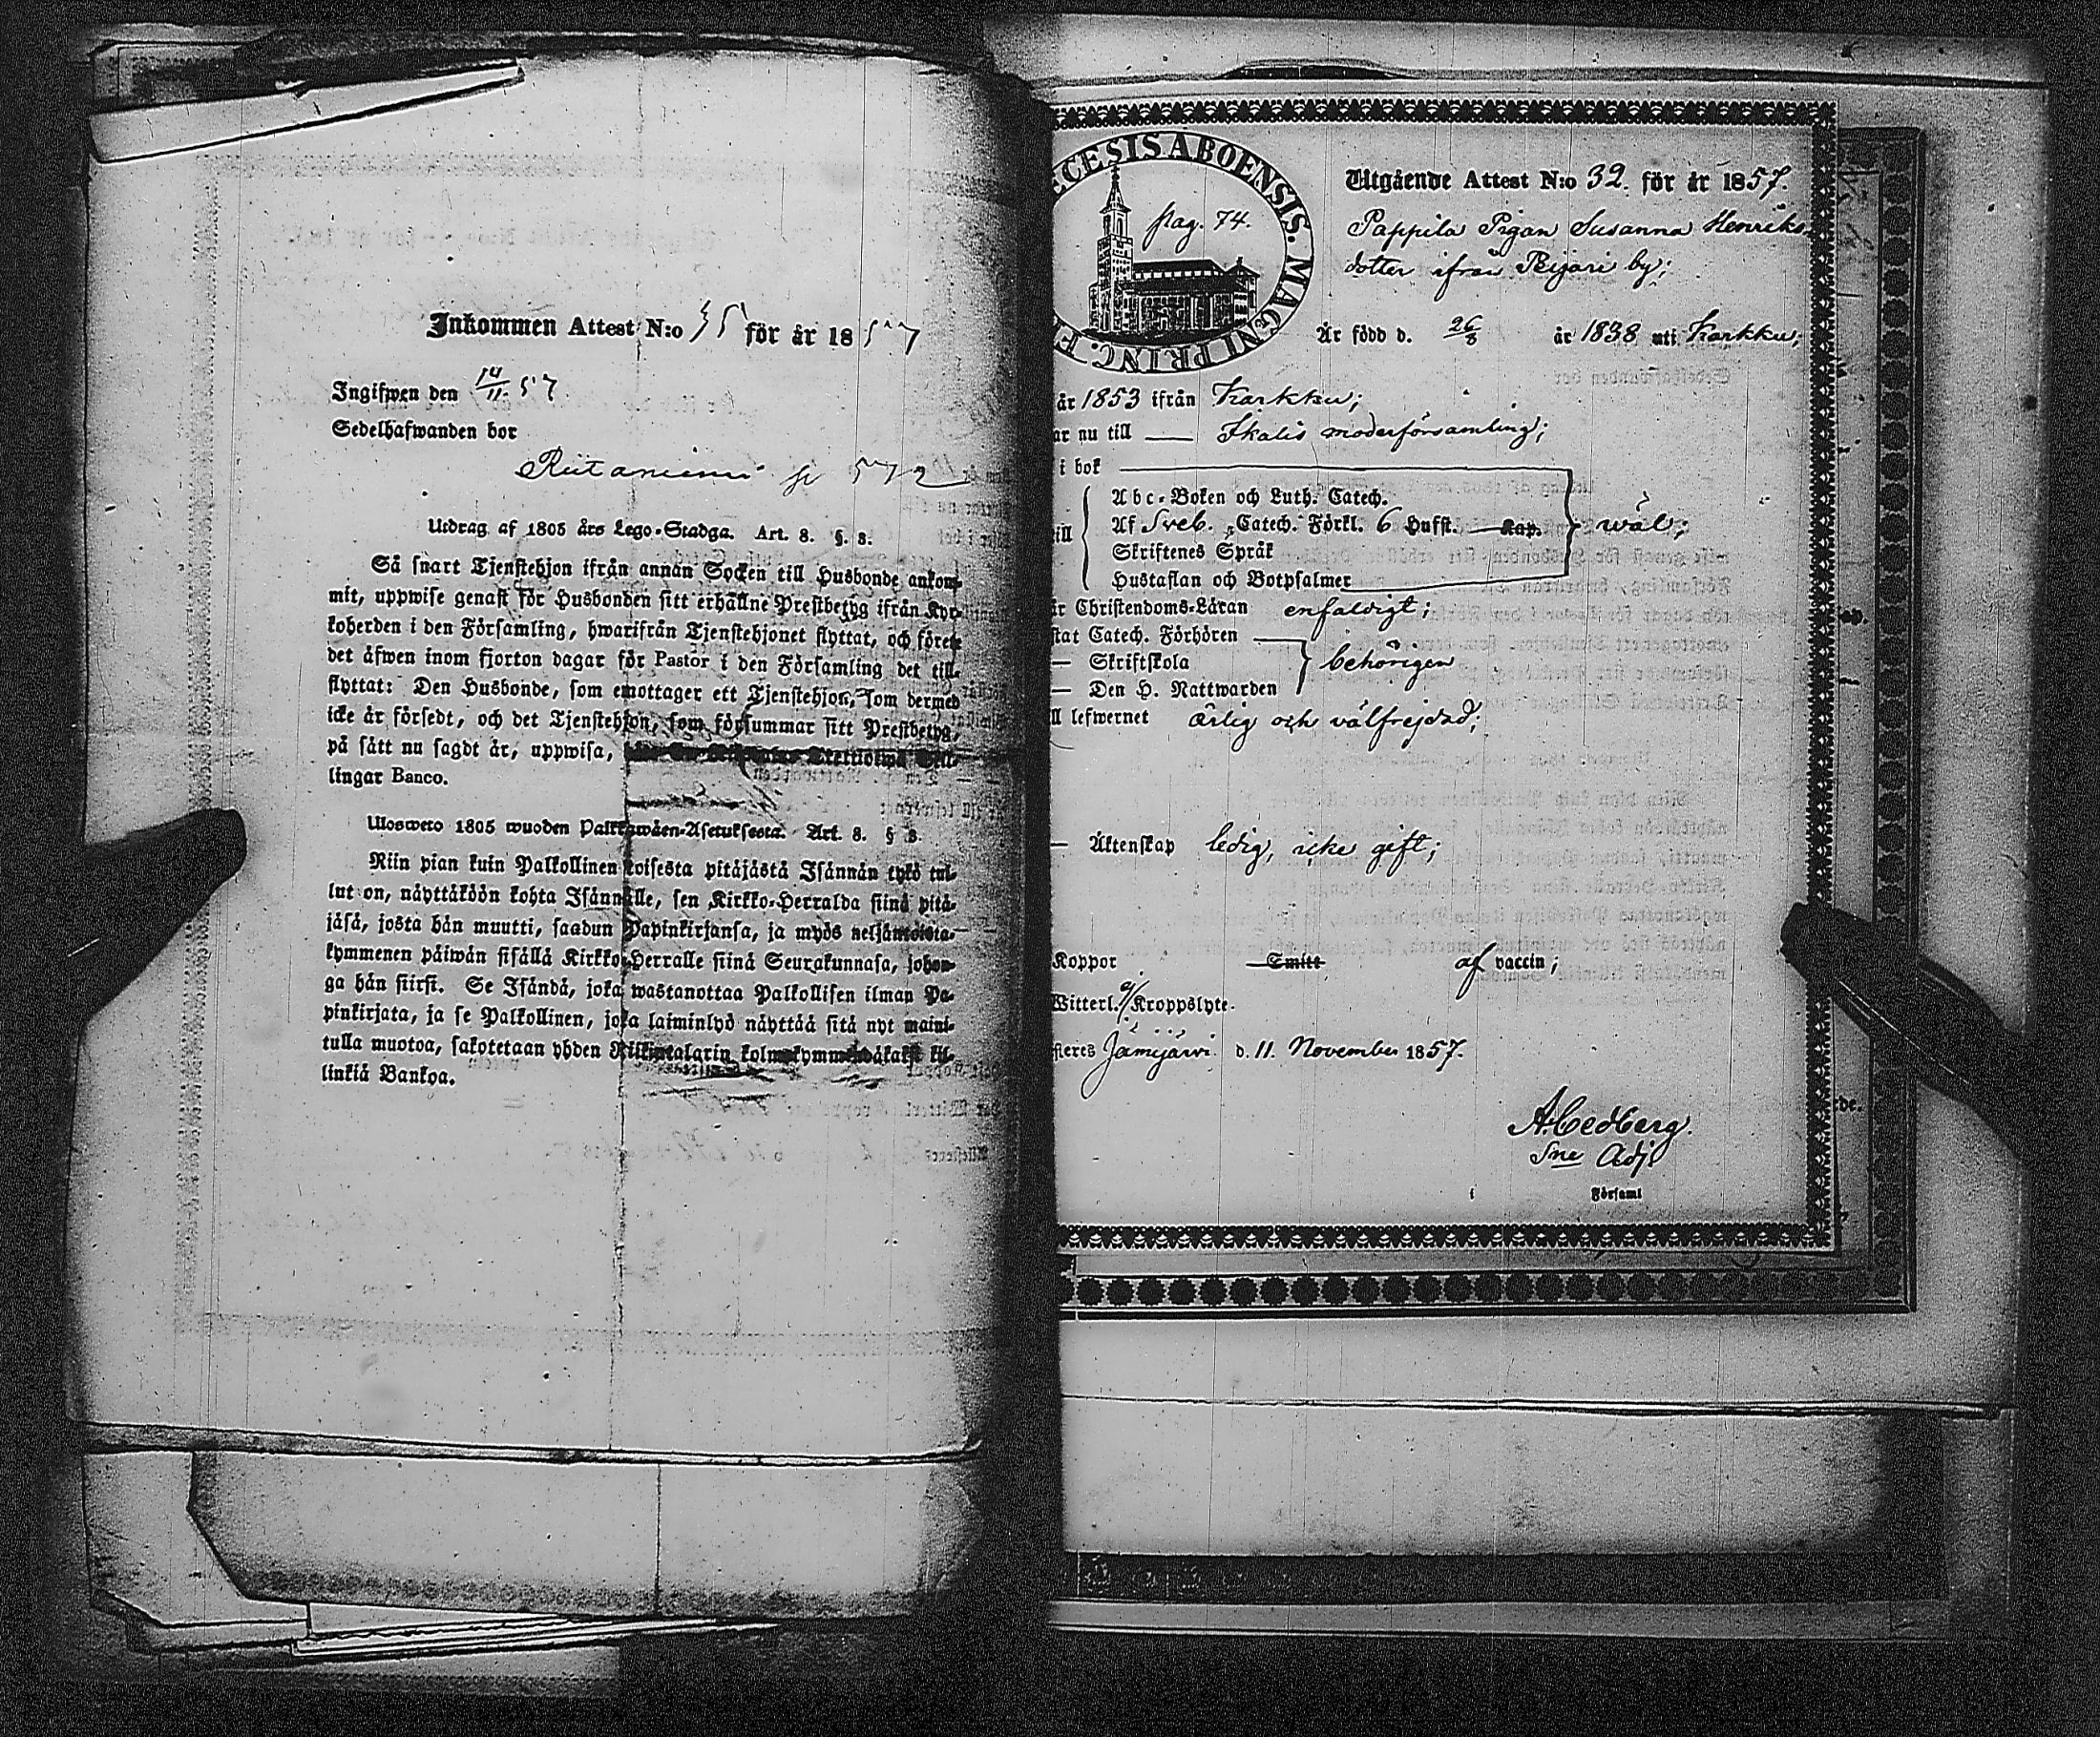 Inkommen Attest N:o 35 för år 1857
Ingifwen den 14/11 57.
Sedelhafwanden bor
Riitaniemi 572
Utdrag af 1805 års Lego-Stadga. Art. 8. §. 8.
Så snart Tjenstehjon ifrån annan Socken till Husbonde ankom-
mit, uppwise genast för Husbonden sitt erhållne Prestbetyg ifrån Kyr-
koherden i den Församling, hwarifrån Tjenstehjonet flyttat, och förete
det äfwen inom fjorton dagar för Pastor i den Församling det till-
flyttat: Den Husbonde, som emottager ett Tjenstehjon, som dermed
icke är försedt, och det Tjenstehjon, som försummar sitt Prestbetyg,
på sätt nu sagdt är, uppwisa,
lingar Banco.
Ulosweto 1805 wuoden Palkkawäen-Asetuksesta. Art. 8. § 8.
Niin pian kuin Palkollinen toisesta pitäjästä Isännän tykö tul-
lut on, näyttäköön kohta Isännälle, sen Kirkko-Herralda siinä pitä-
jäsä, josta hän muutti, saadun Papinkirjansa, ja myös neljäntoista-
kymmenen päiwän sisällä Kirkko-Herralle siinä Seurakunnasa, johon-
ga hän siirsi. Se Isändä, joka wastanottaa Palkollisen ilman Pa-
pinkirjata, ja se Palkollinen, joka laiminlyö näyttää sitä nyt maini-
tulla muotoa, sakotetaan yhden Riikintalarin kolmekymmendäkaksi kil-
linkiä Bankoa.
ECESIS ABOENSIS. MAGNI PRINC. F
pag. 74.
Utgående Attest N:o 32. för år 1857.
Pappila Pigan Susanna Henriks-
dotter ifrån Peijari by;
Är född d. 26/8 år 1838 uti Karkku;
år 1853 ifrån Karkku;
ar nu till — Ikalis moderförsamling;
i bok
Abc-Boken och Luth. Catech.
ill Af Sveb. Catech. Förkl. 6 Hufst. Kap. wäl;
Skriftenes Språk
Hustaflan och Botpsalmer
är Christendoms-Läran enfaldigt;
stat Catech. Förhören
— Skriftskola behörigen
— Den H. Nattwarden
ll lefwernet ärlig och välfrejdad;
— Äktenskap ledig, icke gift;
Koppor Smitt af vaccin;
Witterl. a/ Kroppslyte.
steres Jämijärvi d. 11. November 1857.
A. Cedberg.
Sne Adj.
i Församl